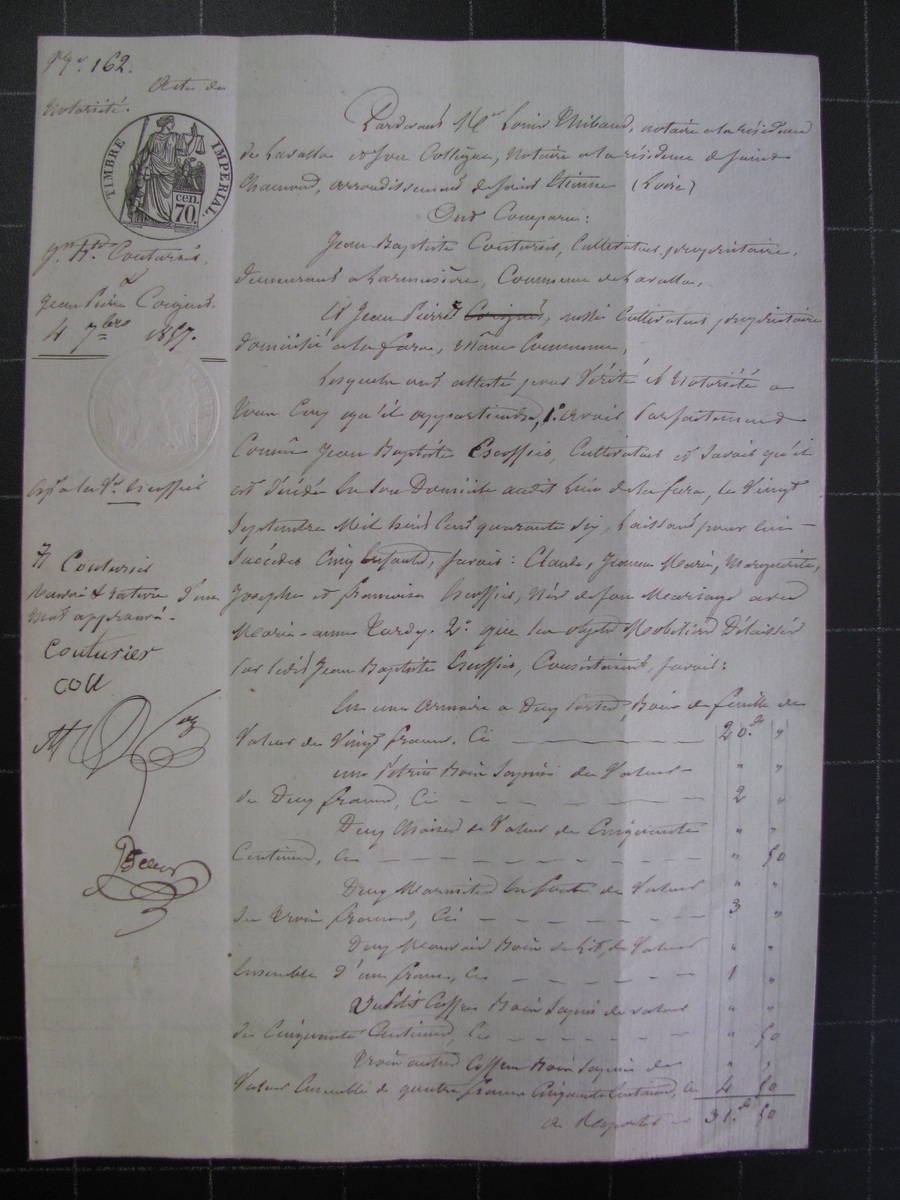 162.
Acte de
Notoriété.
TIMBRE IMPERIAL
70 cen.
Couturier,
Jean Pierre
4 7bre 1857.
Couturier
mot approuvé.
Couturier
coll
Pardevant Me Louis Thibaud, notaire à la résidence
de Lavalla et son Collègue, Notaire à la résidence de Saint
Chamond, arrondissement de Saint Etienne (Loire)
Ont Comparu:
Jean Baptiste Couturier, Cultivateur, propriétaire,
demeurant à Commune de Lavalla,
Et Jean Pierre aussi Cultivateur propriétaire
domicilié à la même Commune,
Lesquels ont attesté pour Vérité et Notoriété a
tous Ceux qu'il appartiendra, 1° avoir Parfaitement
Connu Jean Baptiste Escoffier, Cultivateur et Savoir qu'il
est décédé En son Domicile audit Lieu de la le Vingt
Septembre Mil huit Cent quarante Six, Laissant pour lui
Succéder Cinq Enfants, Savoir: Claude, Jeanne Marie, Marguerite,
Josephe et françoise Escoffier, Nés de son Mariage avec
Marie-anne Tardy. 2° que les objets Mobiliers Délaissés
Par ledit Jean Baptiste Escoffier, Consistaient, Savoir:
En une armoire a Deux Portes, Bois de feuille de
Valeur de Vingt francs. Ci 20.f "
une Bois Sapin de Valeur " "
de Deux francs, Ci 2 "
Deux Chaises de Valeur de Cinquante " "
Centimes, Ci " 50
Deux Marmites En fonte de Valeur " "
de trois francs, Ci 3 "
Deux Mauvais Bois de Lit, de Valeur " "
Ensemble d'un franc, Ci 1 "
Un Petit Coffre Bois Sapin de valeur " "
de Cinquante Centimes, Ci " 50
trois autres Coffres Bois Sapin de " "
Valeur Ensemble de quatre francs Cinquante Centimes, Ci 4 50
a Reporter 31.f 50